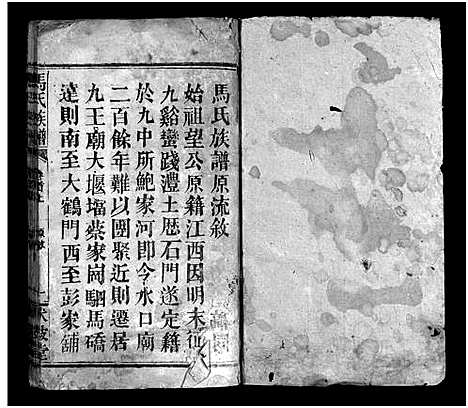 馬氏族譜原流敘
始祖望公原籍江西因明末征
九谿蠻踐澧土歷石門遂定籍
於九中所鮑家河即今水口廟
二百餘年難以團聚近則遷居
九王廟大堰壋蔡家崗駟馬礄
達則南至大鶴門西至彭家舖
馬氏族譜